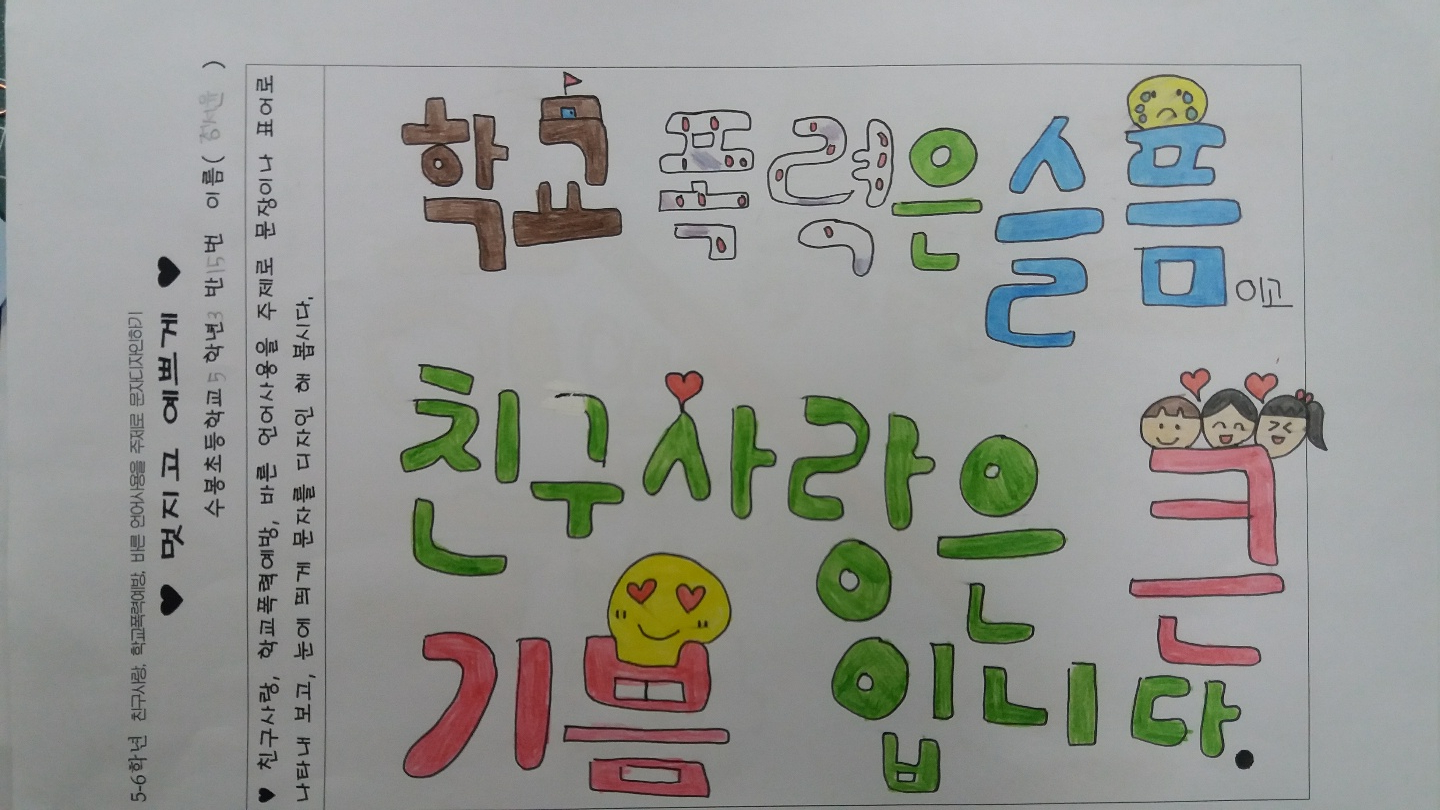 5-6학년 친구사랑, 학교폭력예방, 바른 언어사용을 주제로 문자디자인하기
♥ 멋지고 예쁘게 ♥
수봉초등학교 5 학년 3 반 15번 이름( )
♥ 친구사랑, 학교폭력예방, 바른 언어사용을 주제로 문장이나 표어로
나타내 보고, 눈에 띄게 문자를 디자인 해 봅시다.
학교 폭력은 슬픔이고
친구사랑은 큰
기쁨입니다.